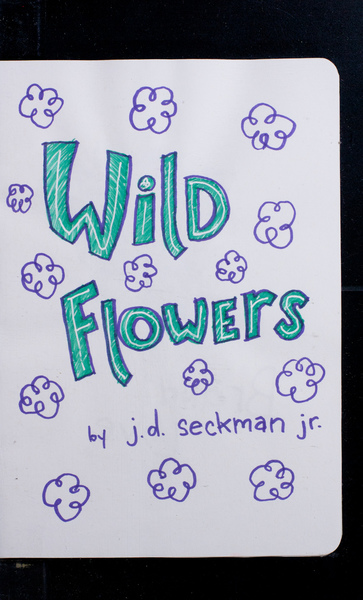 Wild
Flowers
by j.d. seckman jr.